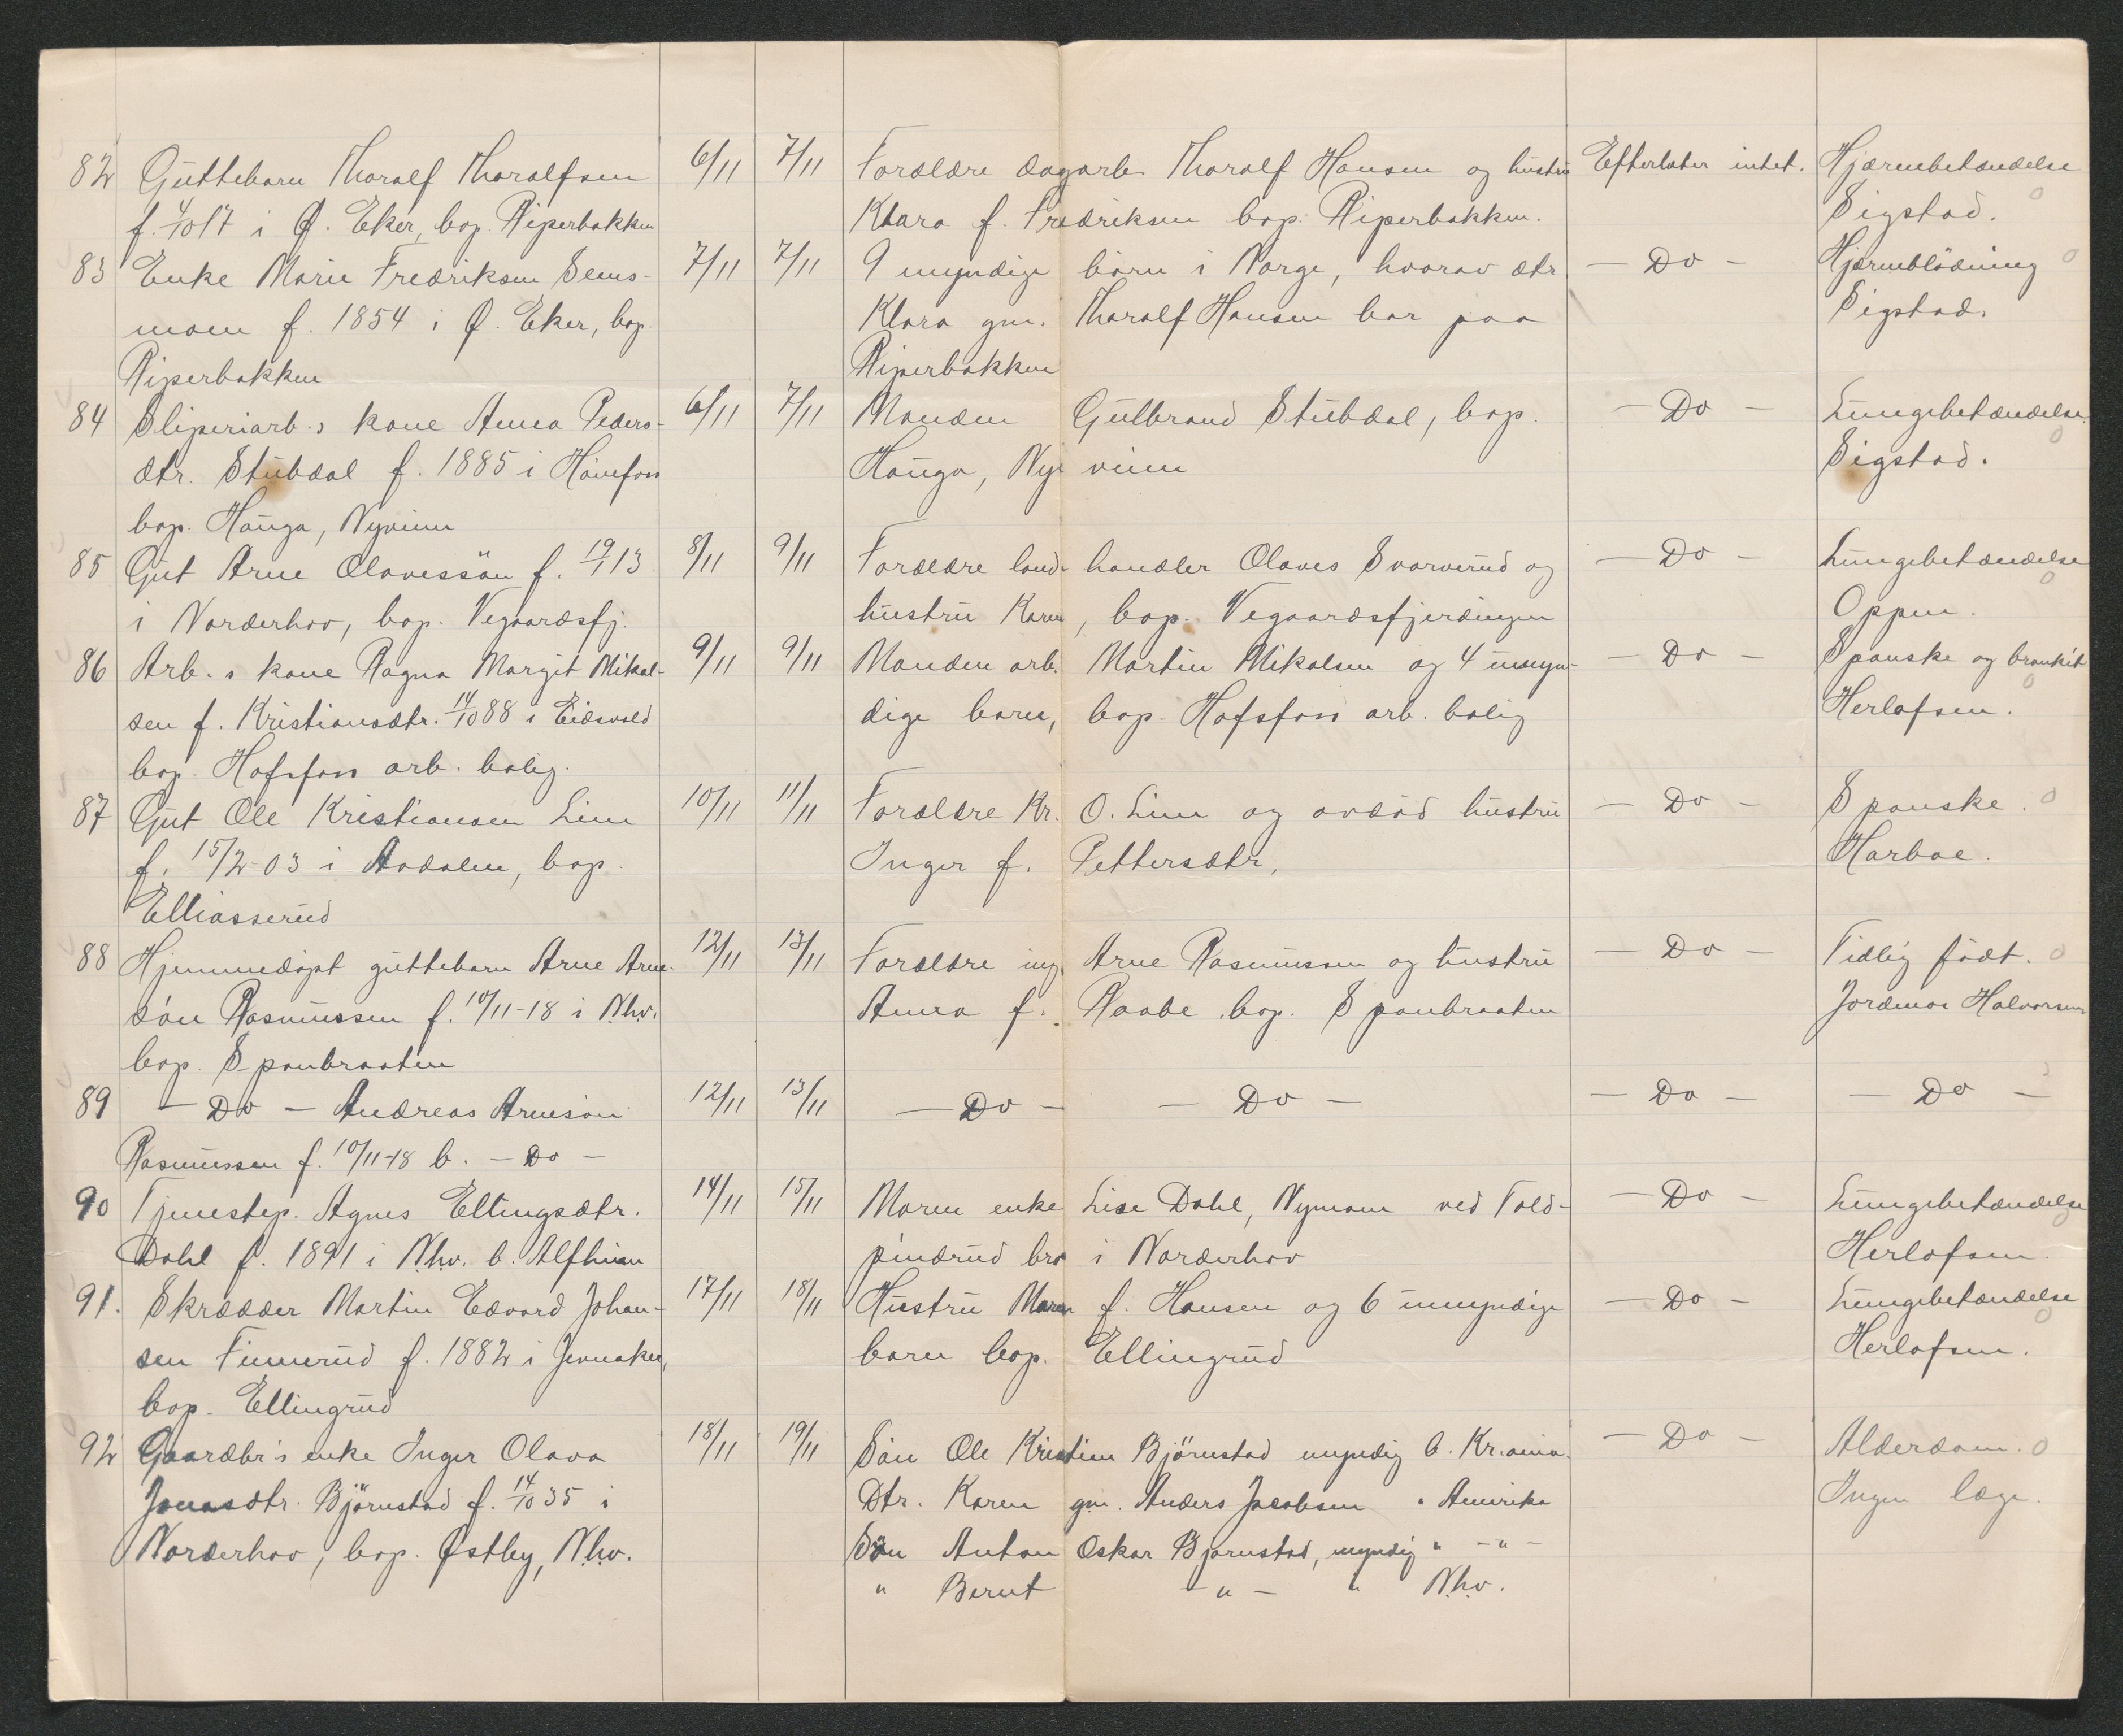 82 Guttebarn Thoralf Thoralfsen 6/11 7/11 Forældre dagarb. Thoralf Hansen og hustru Efterlater intet. Hjærnebetændelse
f. 4/10 17 i Ø. Eker, bop. Riperbakken Klara f. Fredriksen bop. Riperbakken. Sigstad.
83 Enke Marie Fredriksen Sems- 7/11 7/11 9 myndige børn i Norge, hvorav dtr. — Do — Hjærneblødning
moen f. 1854 i Ø. Eker, bop. Klara gm. Thoralf Hansen bor paa Sigstad.
Riperbakken Riperbakken
84 Sliperiarb.s kone Anna Peders- 6/11 7/11 Manden Gulbrand Stubdal, bop. — Do — Lungebetændelse
dtr. Stubdal f. 1885 i Hønefoss Hauga, Nyveien Sigstad.
bop. Hauga, Nyveien
85 Gut Arne Olavessøn f. 19/1 13 8/11 9/11 Forældre landhandler Olaves Svarverud og — Do — Lungebetændelse
i Norderhov, bop. Vegaardsfj. hustru Karen, bop. Vegaardsfjerdingen Oppen.
86 Arb.s kone Ragna Margit Mikal- 9/11 9/11 Manden arb. Martin Mikalsen og 4 umyn- — Do — Spanske og bronkit
sen f. Kristiansdtr. 14/10 88 i Eidsvold dige barn, bop. Hofsfoss arb. bolig Herlofsen.
bop. Hofsfoss arb. bolig.
87 Gut Ole Kristiansen Lien 10/11 11/11 Forældre Kr. O. Lien og avdød hustru — Do — Spanske.
f. 15/2-03 i Aadalen, bop. Inger f. Pettersdtr. Harboe.
Elliasserud
88 Hjemmedøpt guttebarn Arne Arne- 12/11 13/11 Forældre ing. Arne Rasmussen og hustru — Do — Tidlig født.
søn Rasmussen f. 10/11-18 i Nhv. Anna f. Raabe bop. Spanbraaten Jordmor Halvorsen
bop. Spanbraaten
89 — Do — Andreas Arnesøn 12/11 13/11 — Do — — Do — — Do — — Do —
Rasmussen f. 10/11-18 b. — Do —
90 Tjenestep. Agnes Ellingsdtr. 14/11 15/11 Moren enke Lise Dahl, Nymoen ved Fold- — Do — Lungebetændelse
Dahl f. 1891 i Nhv. b. Alfheim pindrud bro i Norderhov Herlofsen
91. Skrædder Martin Edvard Johan- 17/11 18/11 Hustru Maren f. Hansen og 6 umyndige — Do — Lungebetændelse
sen Finnerud f. 1882 i Jevnaker, barn bop. Ellingrud Herlofsen.
bop. Ellingrud
92 Gaardbr's enke Inger Olava 18/11 19/11 Søn Ole Kristian Bjørnstad myndig b. Kr.ania. — Do — Alderdom.
Jonasdtr. Bjørnstad f. 14/10 35 i Dtr. Karen gm. Anders Jacobsen " Amerika Ingen læge.
Norderhov, bop. Østby, Nhv. Søn Anton Oskar Bjørnstad, myndig " — " —
" Bernt — " — " Nhv.